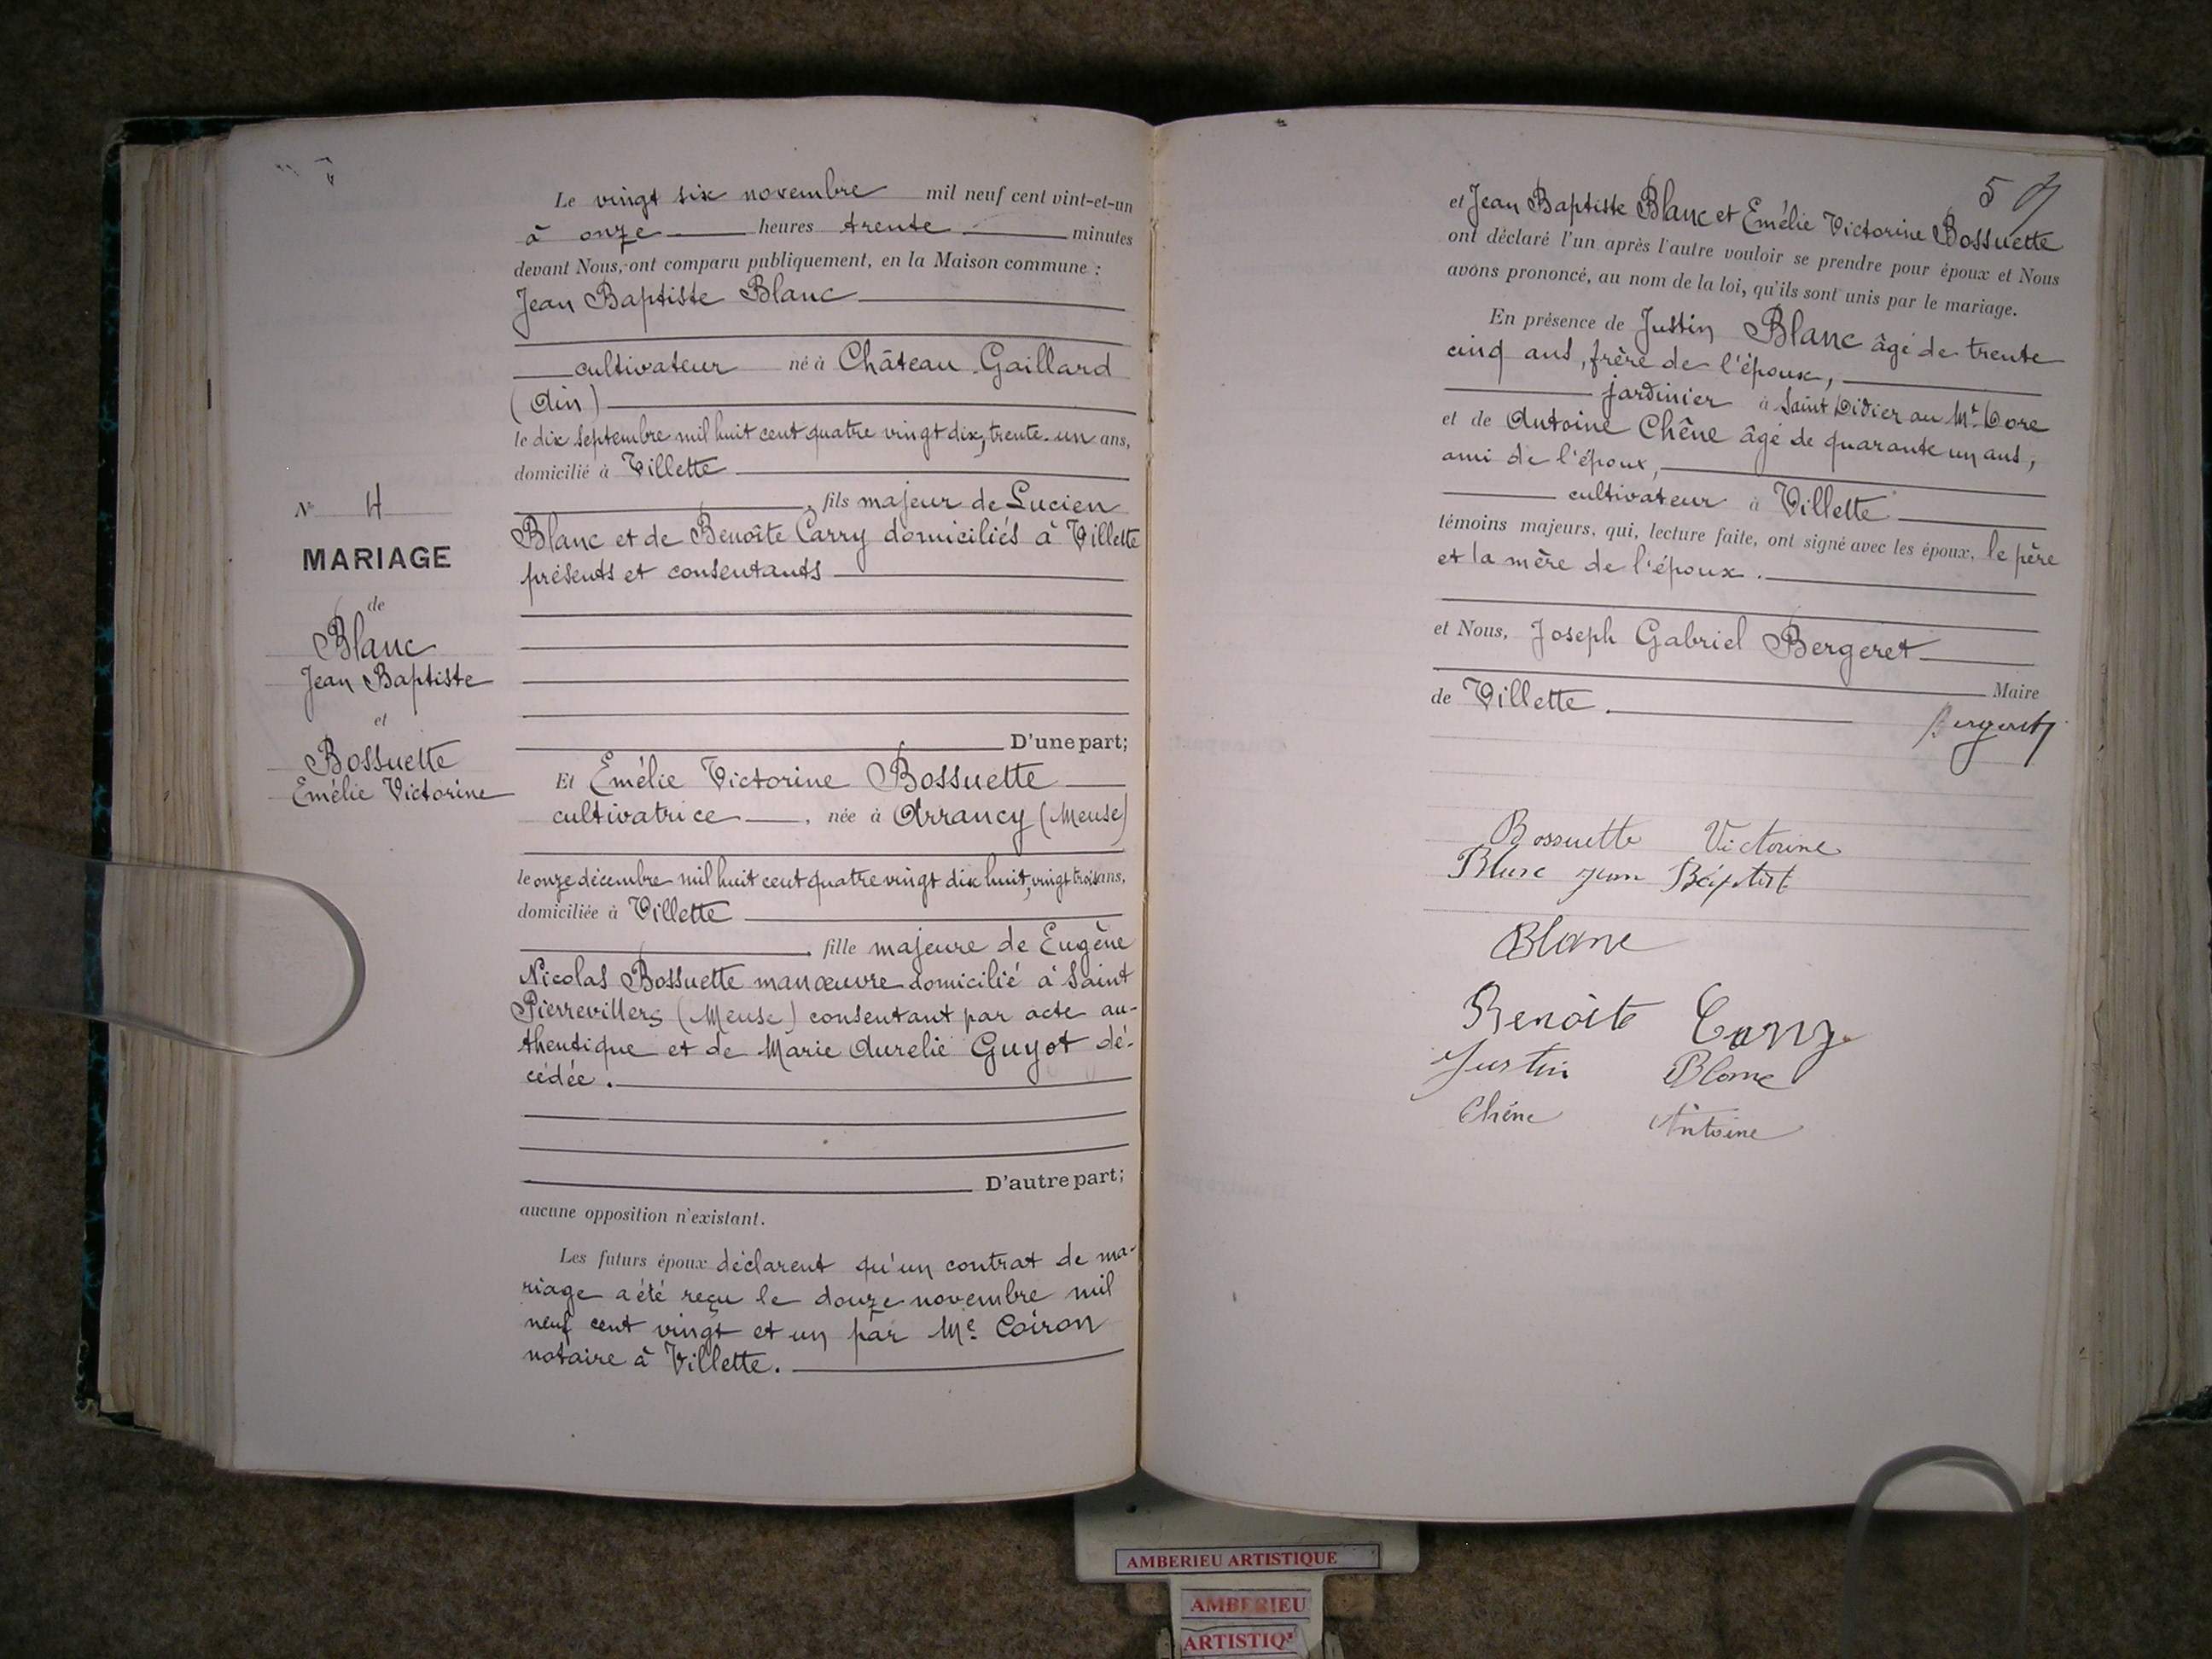 Le vingt six novembre mil neuf cent vint-et-un
à onze heures trente minutes
devant Nous, ont comparu publiquement, en la Maison commune :
Jean Baptiste Blanc
cultivateur né à Château Gaillard
(Ain)
le dix septembre mil huit cent quatre vingt dix, trente-un ans,
domicilié à Villette
, fils majeur de Lucien
Blanc et de Benoîte Carry domiciliés à Villette
présents et consentants
D'une part;
Et Emélie Victorine Bossuette
cultivatrice, née à Arrancy (Meuse)
le onze décembre mil huit cent quatre vingt dix huit, vingt trois ans,
domiciliée à Villette
, fille majeure de Eugène
Nicolas Bossuette manœuvre domicilié à Saint
Pierrevillers (Meuse) consentant par acte au-
thentique et de Marie Aurelie Guyot dé-
cédée.
D'autre part;
aucune opposition n'existant.
Les futurs époux déclarent qu'un contrat de ma-
riage a été reçu le douze novembre mil
neuf cent vingt et un par Me Coiron
notaire à Villette.
No 4
MARIAGE
de
Blanc
Jean Baptiste
et
Bossuette
Emélie Victorine
5
et Jean Baptiste Blanc et Emélie Victorine Bossuette
ont déclaré l'un après l'autre vouloir se prendre pour époux et Nous
avons prononcé, au nom de la loi, qu'ils sont unis par le mariage.
En présence de Justin Blanc âgé de trente
cinq ans, frère de l'époux,
jardinier à Saint Didier au Mt Dore
et de Antoine Chêne âgé de quarante un ans,
ami de l'époux,
cultivateur à Villette
témoins majeurs, qui, lecture faite, ont signé avec les époux, le père
et la mère de l'époux.
et Nous, Joseph Gabriel Bergeret
Maire
de Villette.
Bergeret
Bossuette Victorine
Blanc Jean Baptist
Blanc
Benoîte Carry
Justin Blanc
Chêne Antoine
AMBERIEU ARTISTIQUE
AMBERIEU
ARTISTIQ